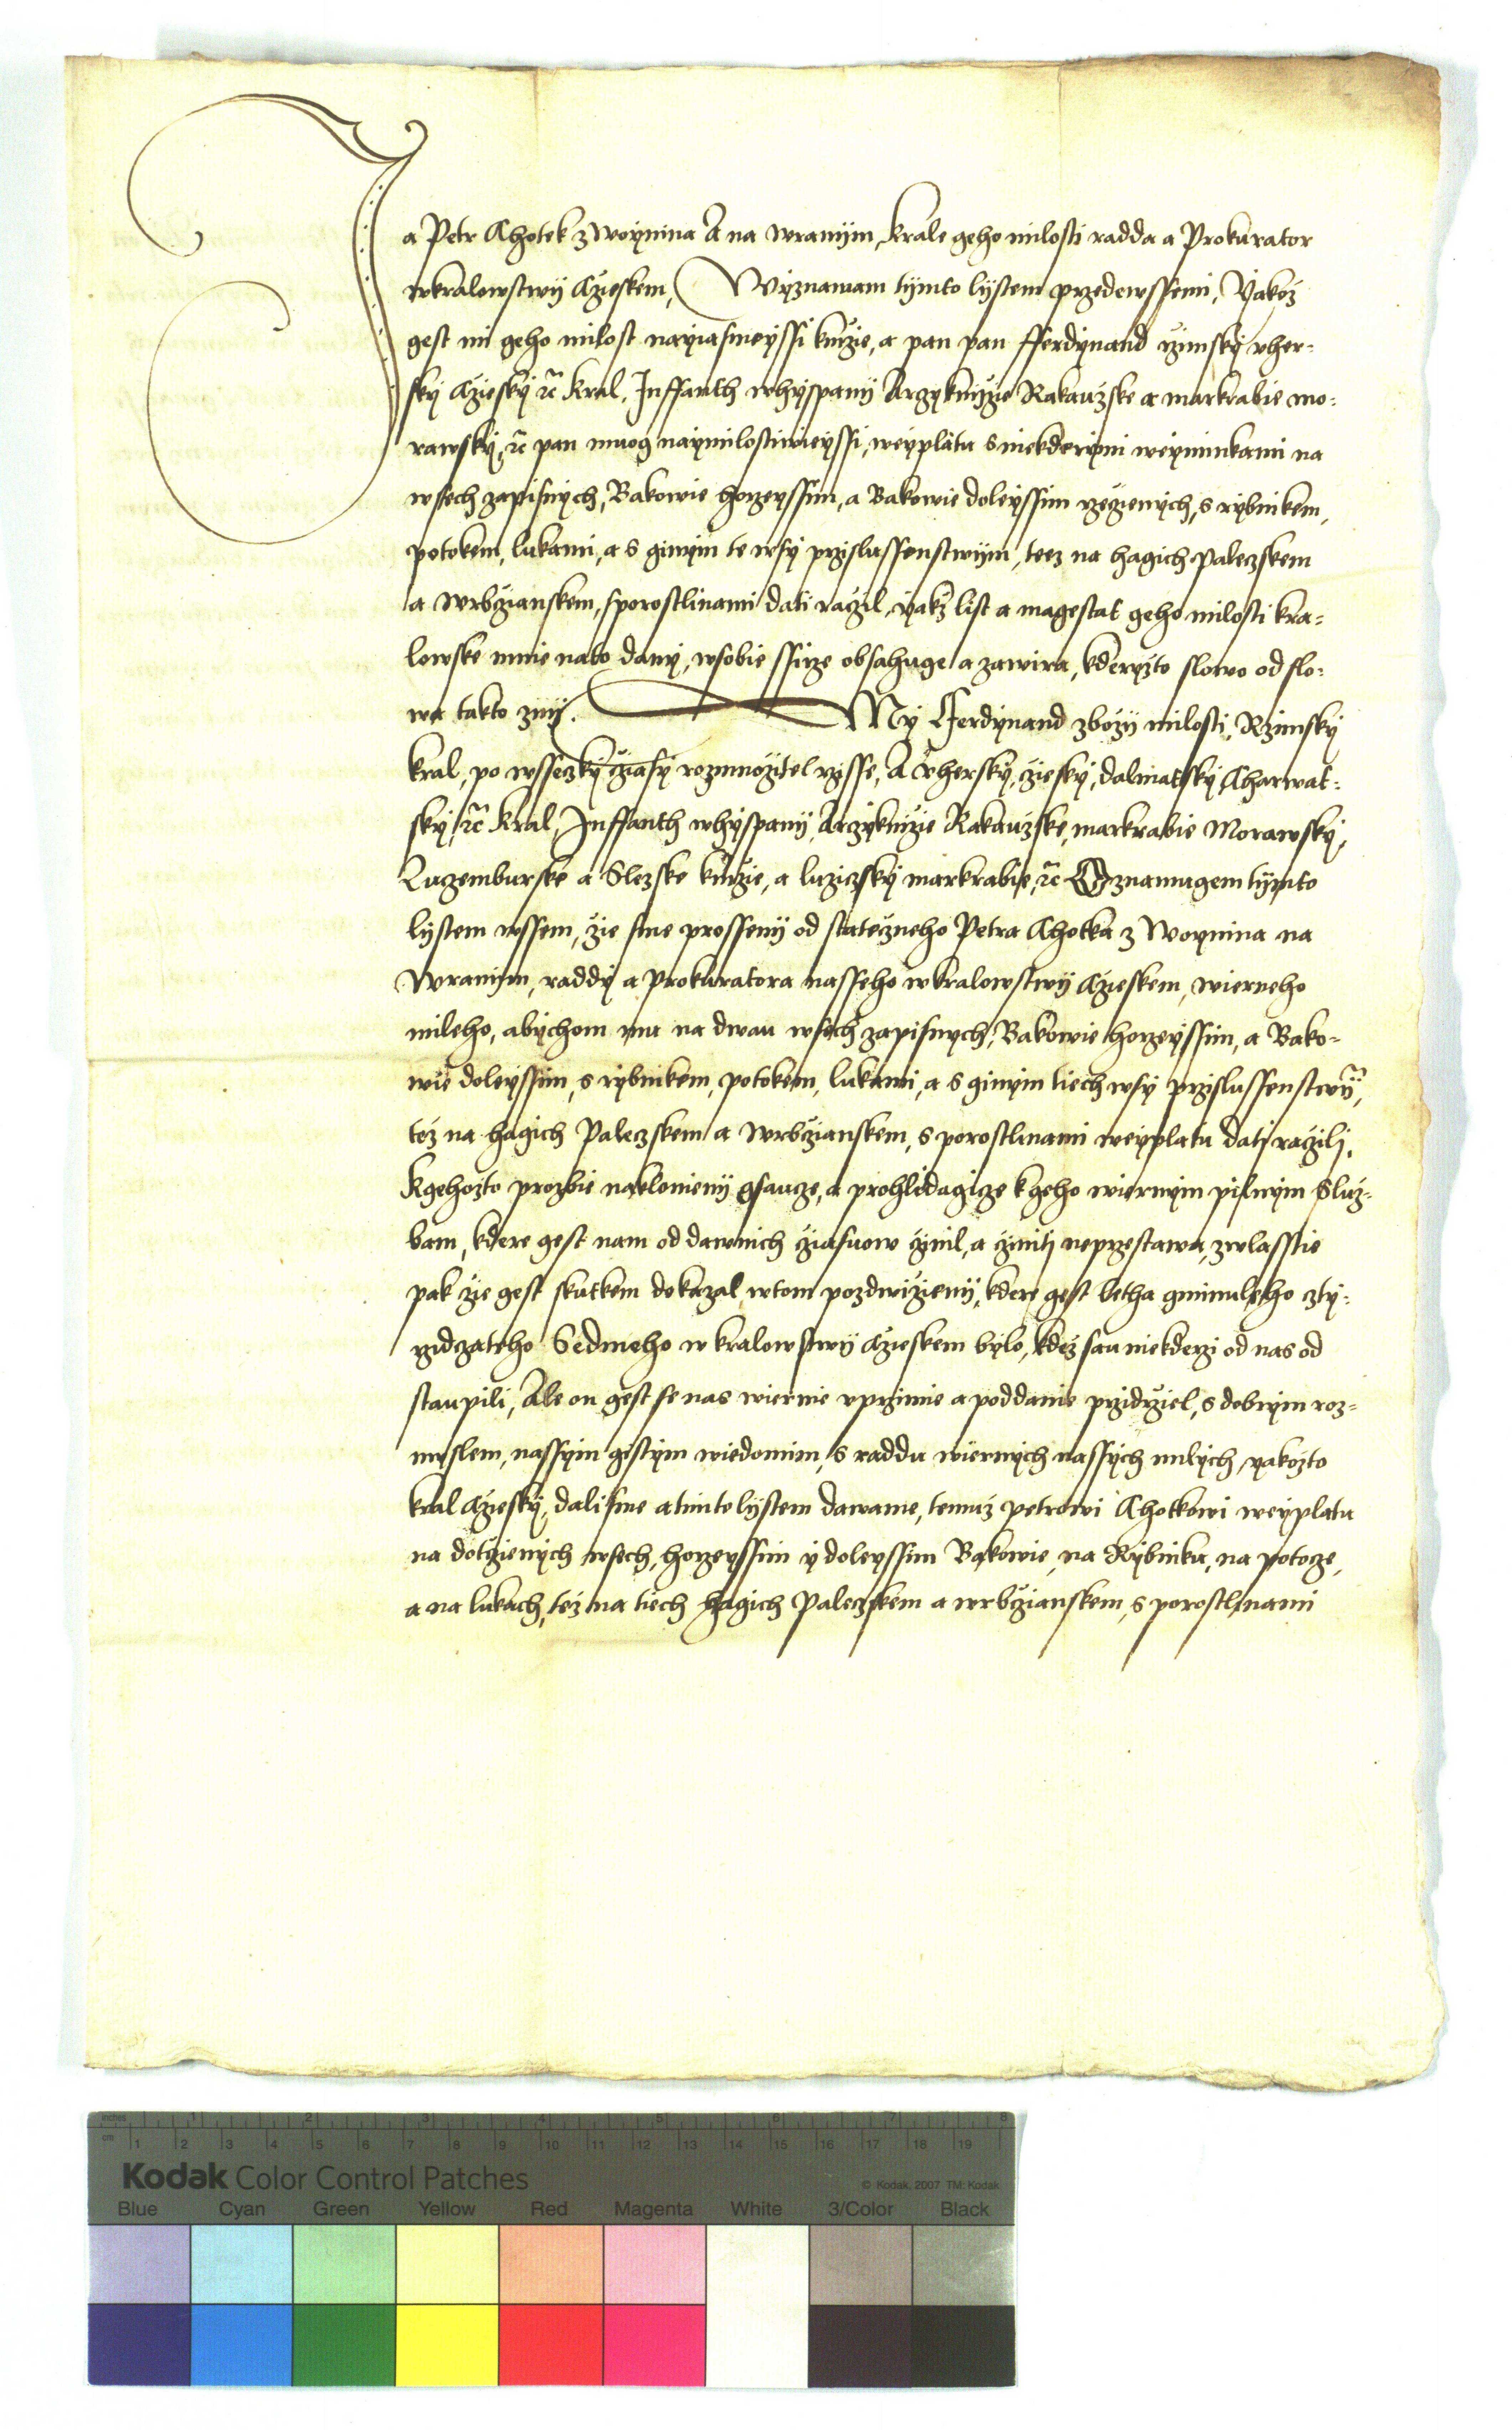 Ja Petr Chotek z Woynina A na wranym, krale geho milosti radda a Prokurator
wkralowstwij Czieskem, Wyznawam tijmto lystem przedewssemi, Yakoz
gest mi geho milost nayiasneyssi knizie, a pan pan Fferdynand rzimsky vher-
sky Czesky ꝛc̃ Kral, Inffanth whyspanij Arzyknijzie Rakauzske a markrabie mo-
rawsky, ꝛc̃ pan muog naymilostiwieyssi, weyplatu s niekderymi weyminkami na
wsech zapisnych, Bakowie horzeyssim, a Bakowie doleyssim rzeczienych, s rybnikem,
potokem, lukami, a s ginym te wsy przislussenstwijm, teez na hagich Paleczskem
a Wrbczianskem, s porostlinami dati raczil, yakz list a magestat geho milosti kra-
lowske mnie nato dany, wsobie ssirze obsahuge a zawira, kderyzto slowo od slo-
wa takto znij. My Fferdynand zbozij milosti, Rzimsky
kral, po wsseczky cziasy rozmnozitel rzisse, A vhersky, czesky, dalmatsky, Charwat-
sky, ꝛc̃ Kral, Inffanth whyspanij, Arzyknizie Rakauzske, markrabie Morawsky,
Luczemburske a Slezske knizie, a luziczsky markrabie, ꝛc̃ Oznamugem tijmto
lystem wssem, zie sme prosseny od stateczneho Petra Chotka z Woynina na
Wranym, raddy a Prokuratora nasseho wkralowstwij Czieskem, wierneho
mileho, abychom mu na dwau wsech zapisnych, Bakowie horzeyssim, a Bako-
wie doleyssim, s rybnikem, potokem, lukami, a s ginym tiech wsy przislussenstwij,
tez na hagich Paleczskem a Wrbczianskem, s porostlinami weyplatu dati raczili,
Kgehozto prozbie naklonieny gsaucze, a prohlidagicze k geho wiernym pilnym Sluz-
bam, kdere gest nam od dawnich cziasuow czinil, a cziniti neprzestawa, zwlasstie
pak zie gest skutkem dokazal, wtom pozdwizieny, kdere gest letha gminuleho czty-
rzidczateho Sedmeho w kralowstwij Czieskem bylo, kdez sau niekderzi od nas od
staupili, Ale on gest se nas wiernie vprzimie a poddanie przidrziel, s dobrym roz-
myslem, nassym gistym wiedomim, s raddu wiernych nassych milych, yakozto
kral Cziesky, dali sme a timto lystem dawame, temuz petrowi Chotkowi weyplatu
na dotczienych wsech, horzeyssim y doleyssim Bakowie, na Rybniku, na potocze,
a na lukach, tez na tiech hagich Paleczskem a wrbczianskem, s porostlinami
inches 1 2 3 4 5 6 7 8
cm 1 2 3 4 5 6 7 8 9 10 11 12 13 14 15 16 17 18 19
Kodak Color Control Patches © Kodak, 2007 TM: Kodak
Blue Cyan Green Yellow Red Magenta White 3/Color Black